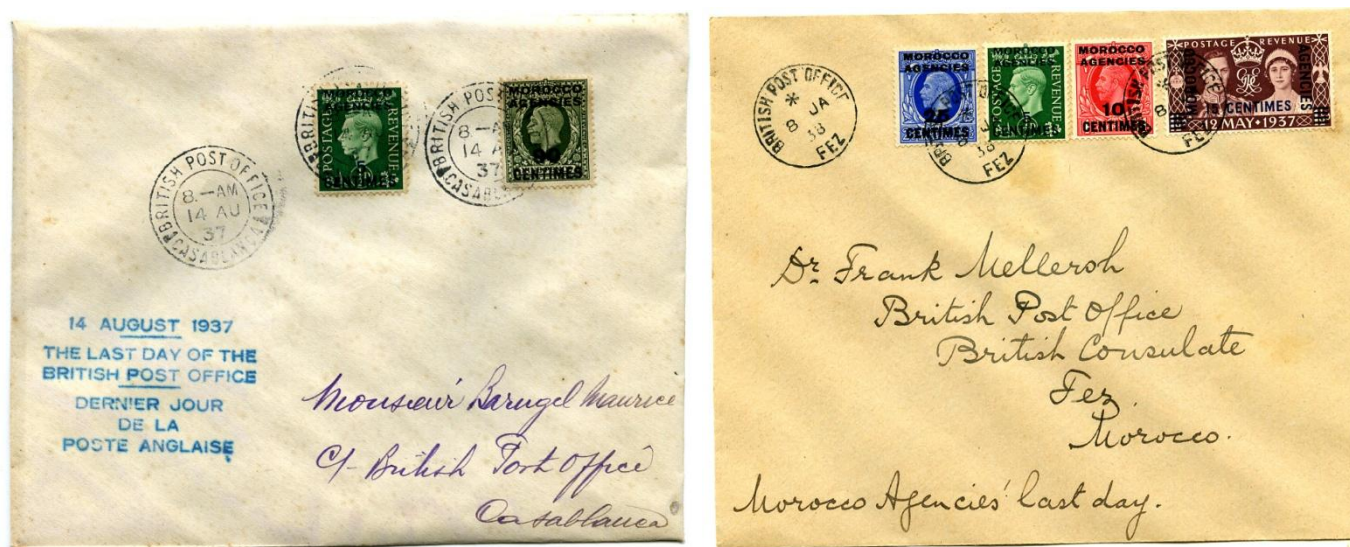 BRITISH POST OFFICE
8.—AM
14 AU
37
CASABLANCA
POSTAGE REVENUE
5
CENTIMES
BRITISH POST
8.—AM
14 A
37
CASABLAN
MOROCCO
AGENCIES
CENTIMES
14 AUGUST 1937
THE LAST DAY OF THE
BRITISH POST OFFICE
DERNIER JOUR
DE LA
POSTE ANGLAISE
Monsieur Barugel Maurice
C/- British Post Office
Casablanca
BRITISH POST OFFICE
*
8 JA
38
FEZ
MOROCCO
AGENCIES
CENTIMES
MOROCCO
AGENCIES
REVENUE
5
CENTIMES
MOROCCO
AGENCIES
10
CENTIMES
POSTAGE REVENUE
MOROCCO AGENCIES
15 CENTIMES
12 MAY·1937
BRITISH POST OFFICE
8 JA
38
FEZ
8
FEZ
Dr. Frank Mellersh
British Post Office
British Consulate
Fez
Morocco.
Morocco Agencies' last day.